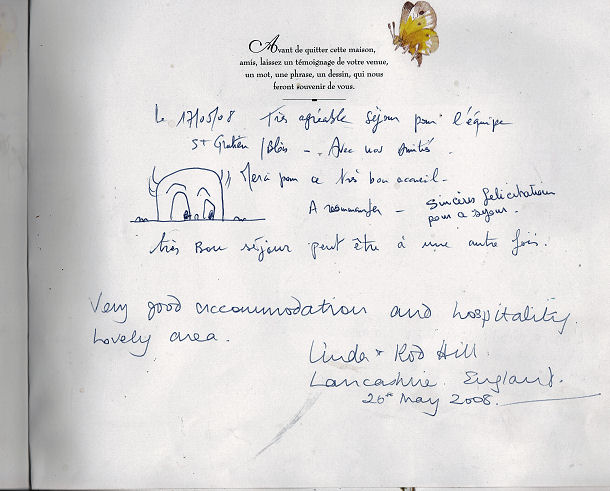 Avant de quitter cette maison,
amis, laissez un témoignage de votre venue,
un mot, une phrase, un dessin, qui nous
feront souvenir de vous.
Le 17/05/08 Très agréable séjour pour l'équipe
St Gratien / Blois - Avec nos amitiés.
Merci pour ce très bon accueil.
A recommander - Sincères félicitations
pour ce séjour.
très Bon séjour peut être à une autre fois.
Very good accommodation and hospitality.
Lovely area.
Linda & Rod Hill.
Lancashire. England.
26th May 2008.